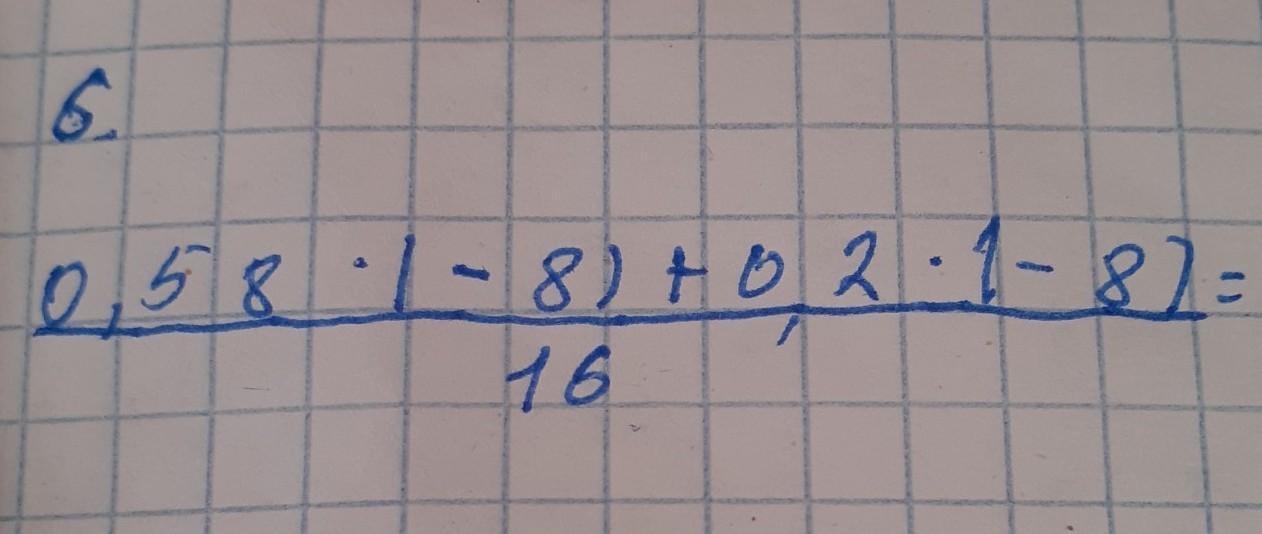 6.
0,58 · (-8) + 0,2 · (-8) =
16